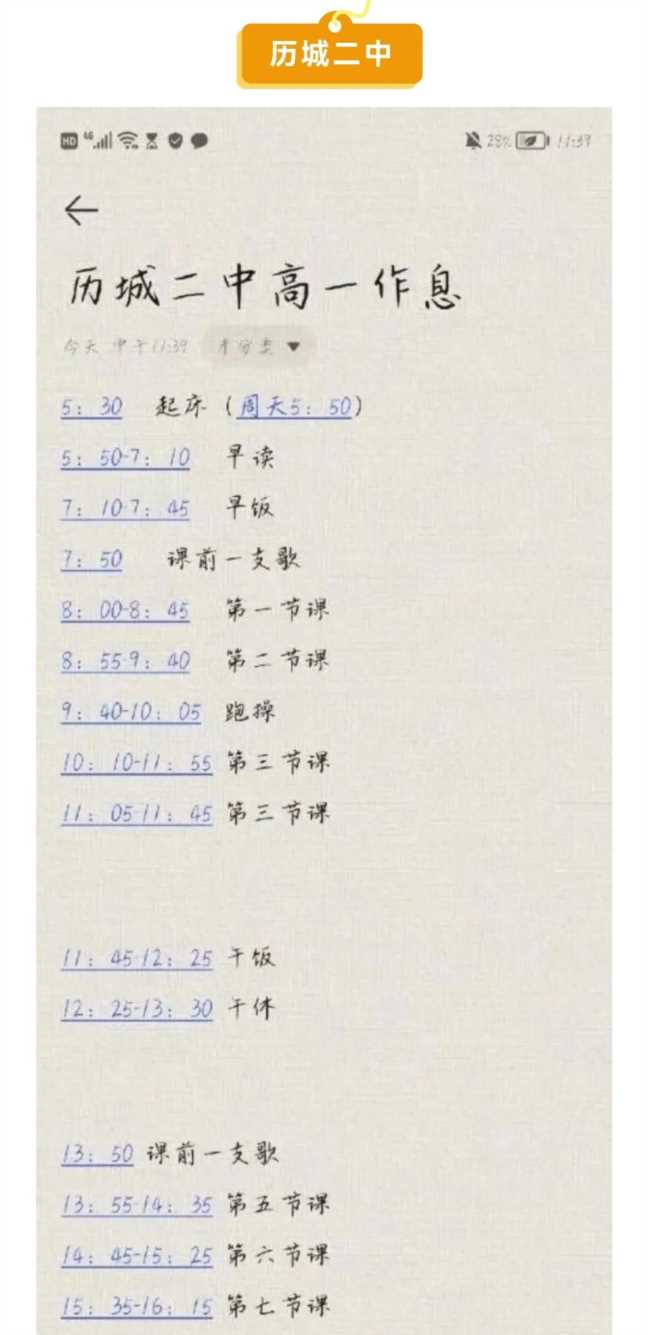 历城二中
HD 4G 28% 11:39
历城二中高一作息
今天 中午11:39 未分类
5：30 起床（周天5：50）
5：50-7：10 早读
7：10-7：45 早饭
7：50 课前一支歌
8：00-8：45 第一节课
8：55-9：40 第二节课
9：40-10：05 跑操
10：10-11：55 第三节课
11：05-11：45 第三节课
11：45-12：25 午饭
12：25-13：30 午休
13：50 课前一支歌
13：55-14：35 第五节课
14：45-15：25 第六节课
15：35-16：15 第七节课